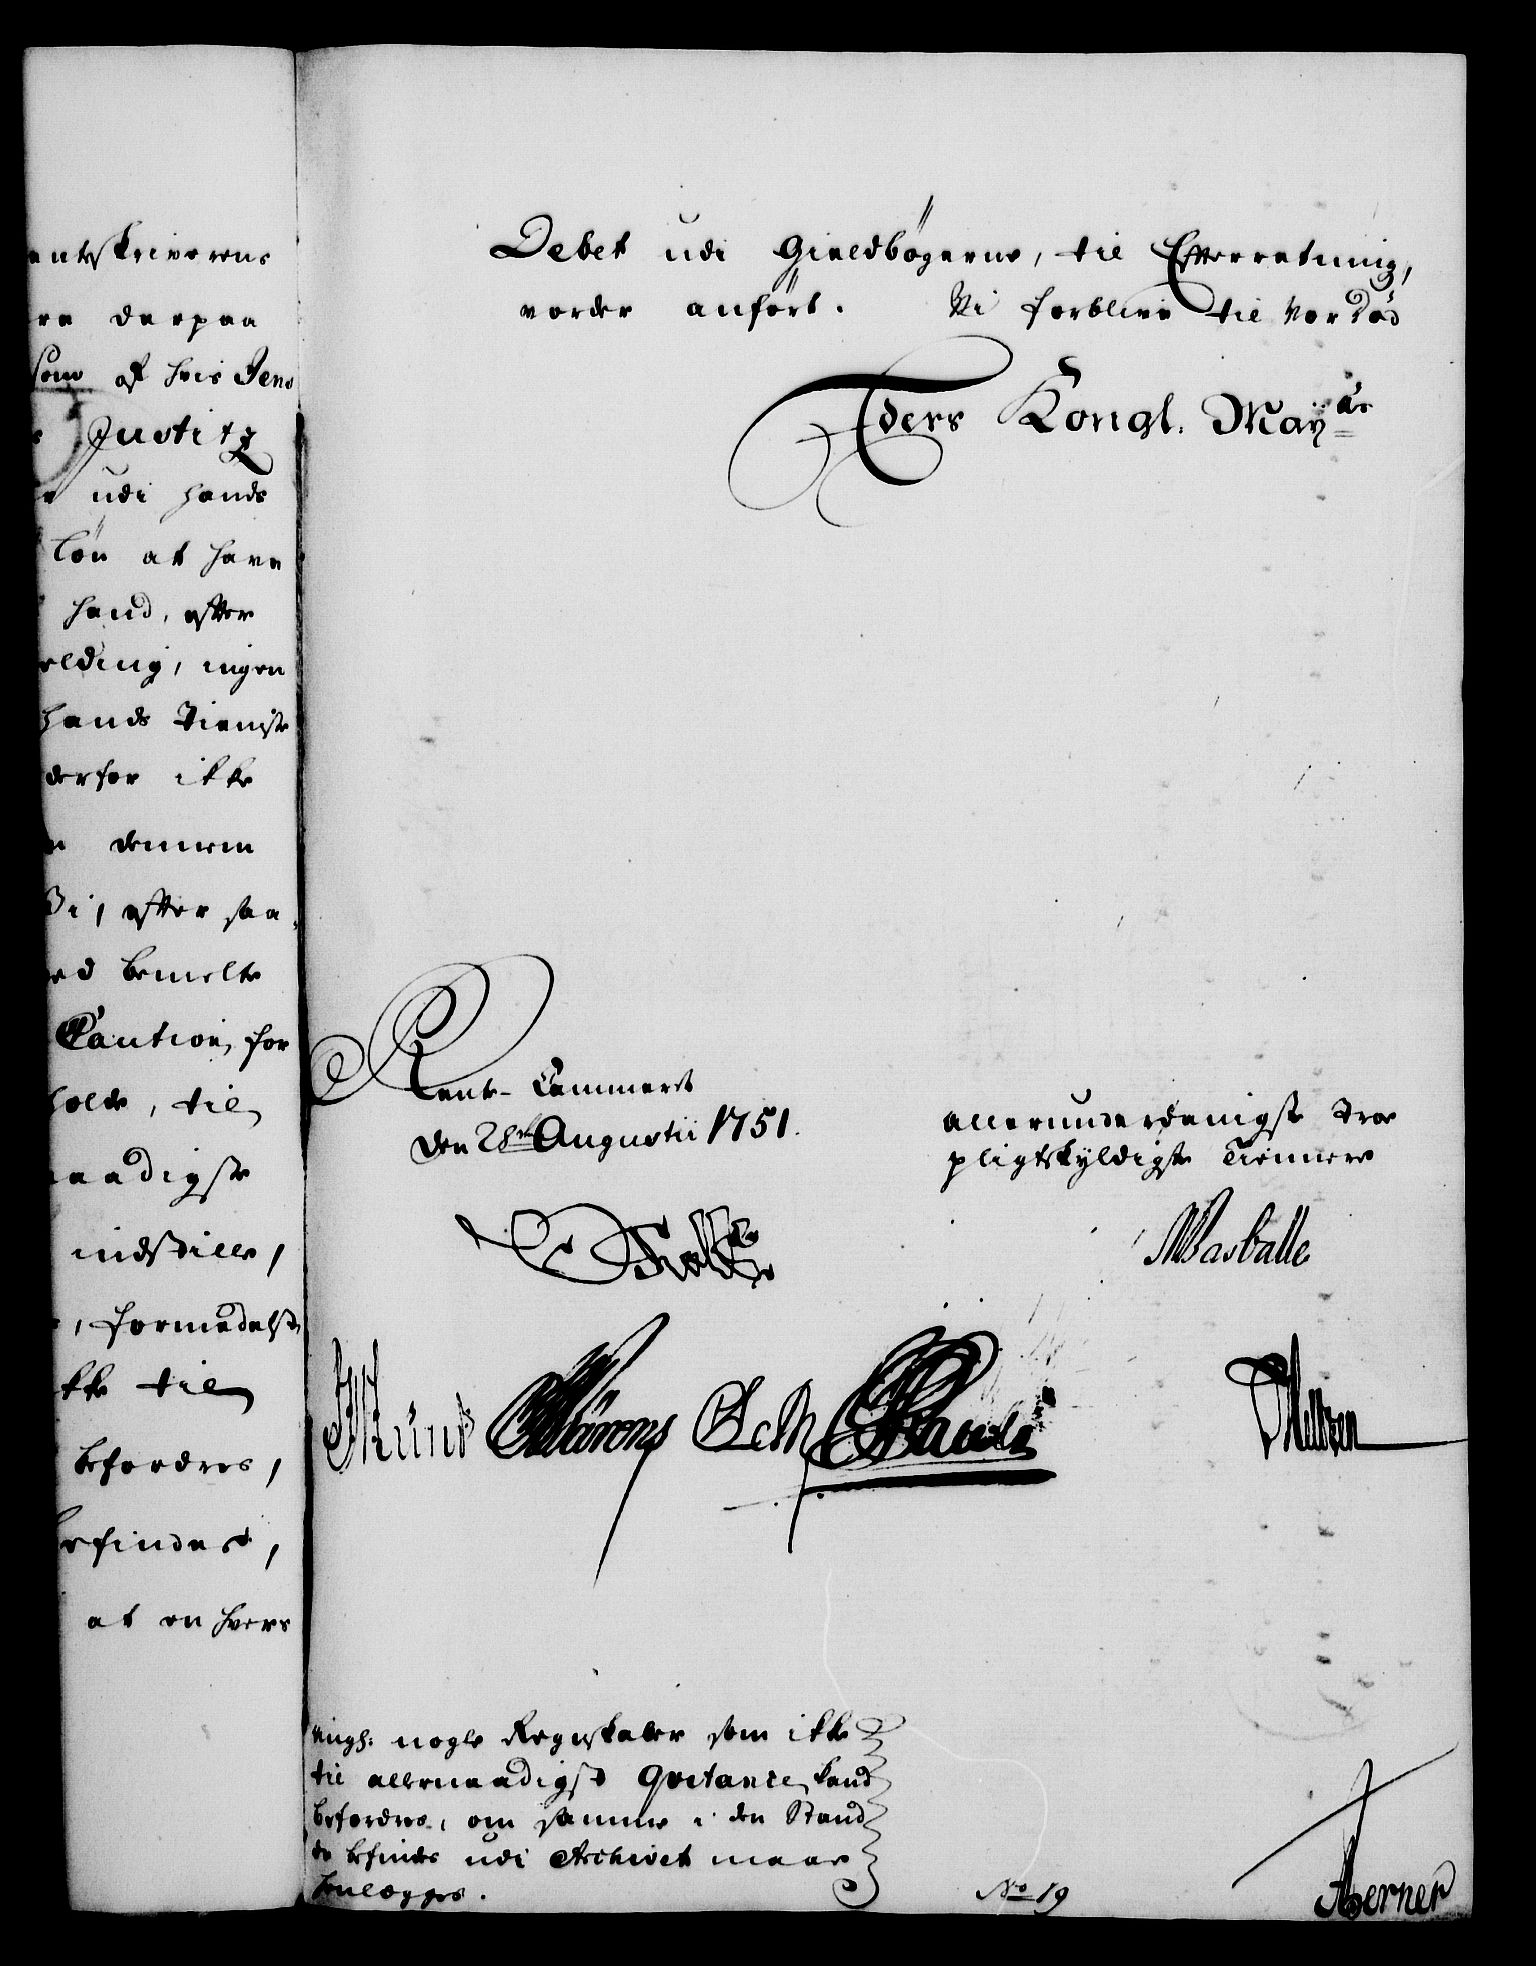 antskriverens
re derpaa
som af hvis Jens
Justitz
udi hands
Løn at have
haand, efter
elding, ingen
hands Tieniste
derfor ikke
dennem
Vi, efter saa-
ed bemelte
Caution, for
holde, til
naadigste
indstille,
, formedelst
kke til
befordres,
befindes,
at en hvers
Debet udi Gieldbøgerne, til Efterretning,
vorder anført. Vi forblive til vor Død
Eders Kongl. Mayts
Rente-Cammeret
den 28de Augustii 1751.
allerunderdanigste troe
pligtskyldigste Tiennere
Holst
Wartballe
Münt
Pauli
angl: nogle Regnskaber som ikke
til allernaadigst Qvitance, kand
befordres, om samme i den Stand
de befindes udi Archivet maae
henlægges.
No 19
Aerner